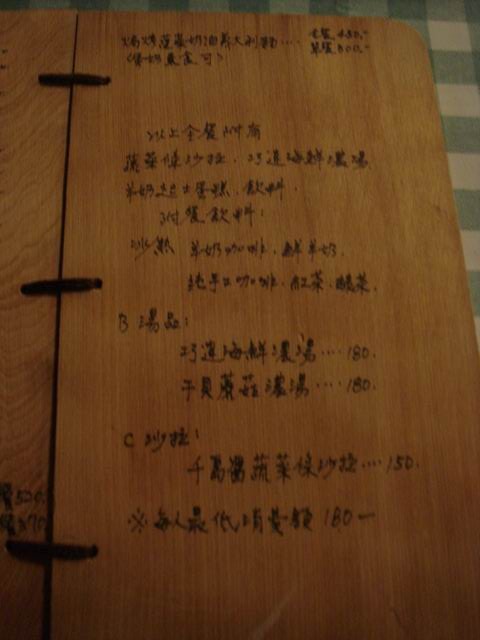 焗烤蔬菜奶油義大利麵‥‥ 全餐 480.-
(蛋奶素食可) 單餐 300.-
以上全餐附有
蔬菜條沙拉．巧達海鮮濃湯．
羊奶起士蛋糕．飲料．
附餐飲料：
冰熱 羊奶咖啡．鮮羊奶．
純手工咖啡．紅茶．酸茶．
B 湯品：
巧達海鮮濃湯‥‥180.
干貝蘑菇濃湯‥‥180.
C 沙拉：
千島醬蔬菜條沙拉‥‥150.
※每人最低消費額 180一
餐520.
餐370